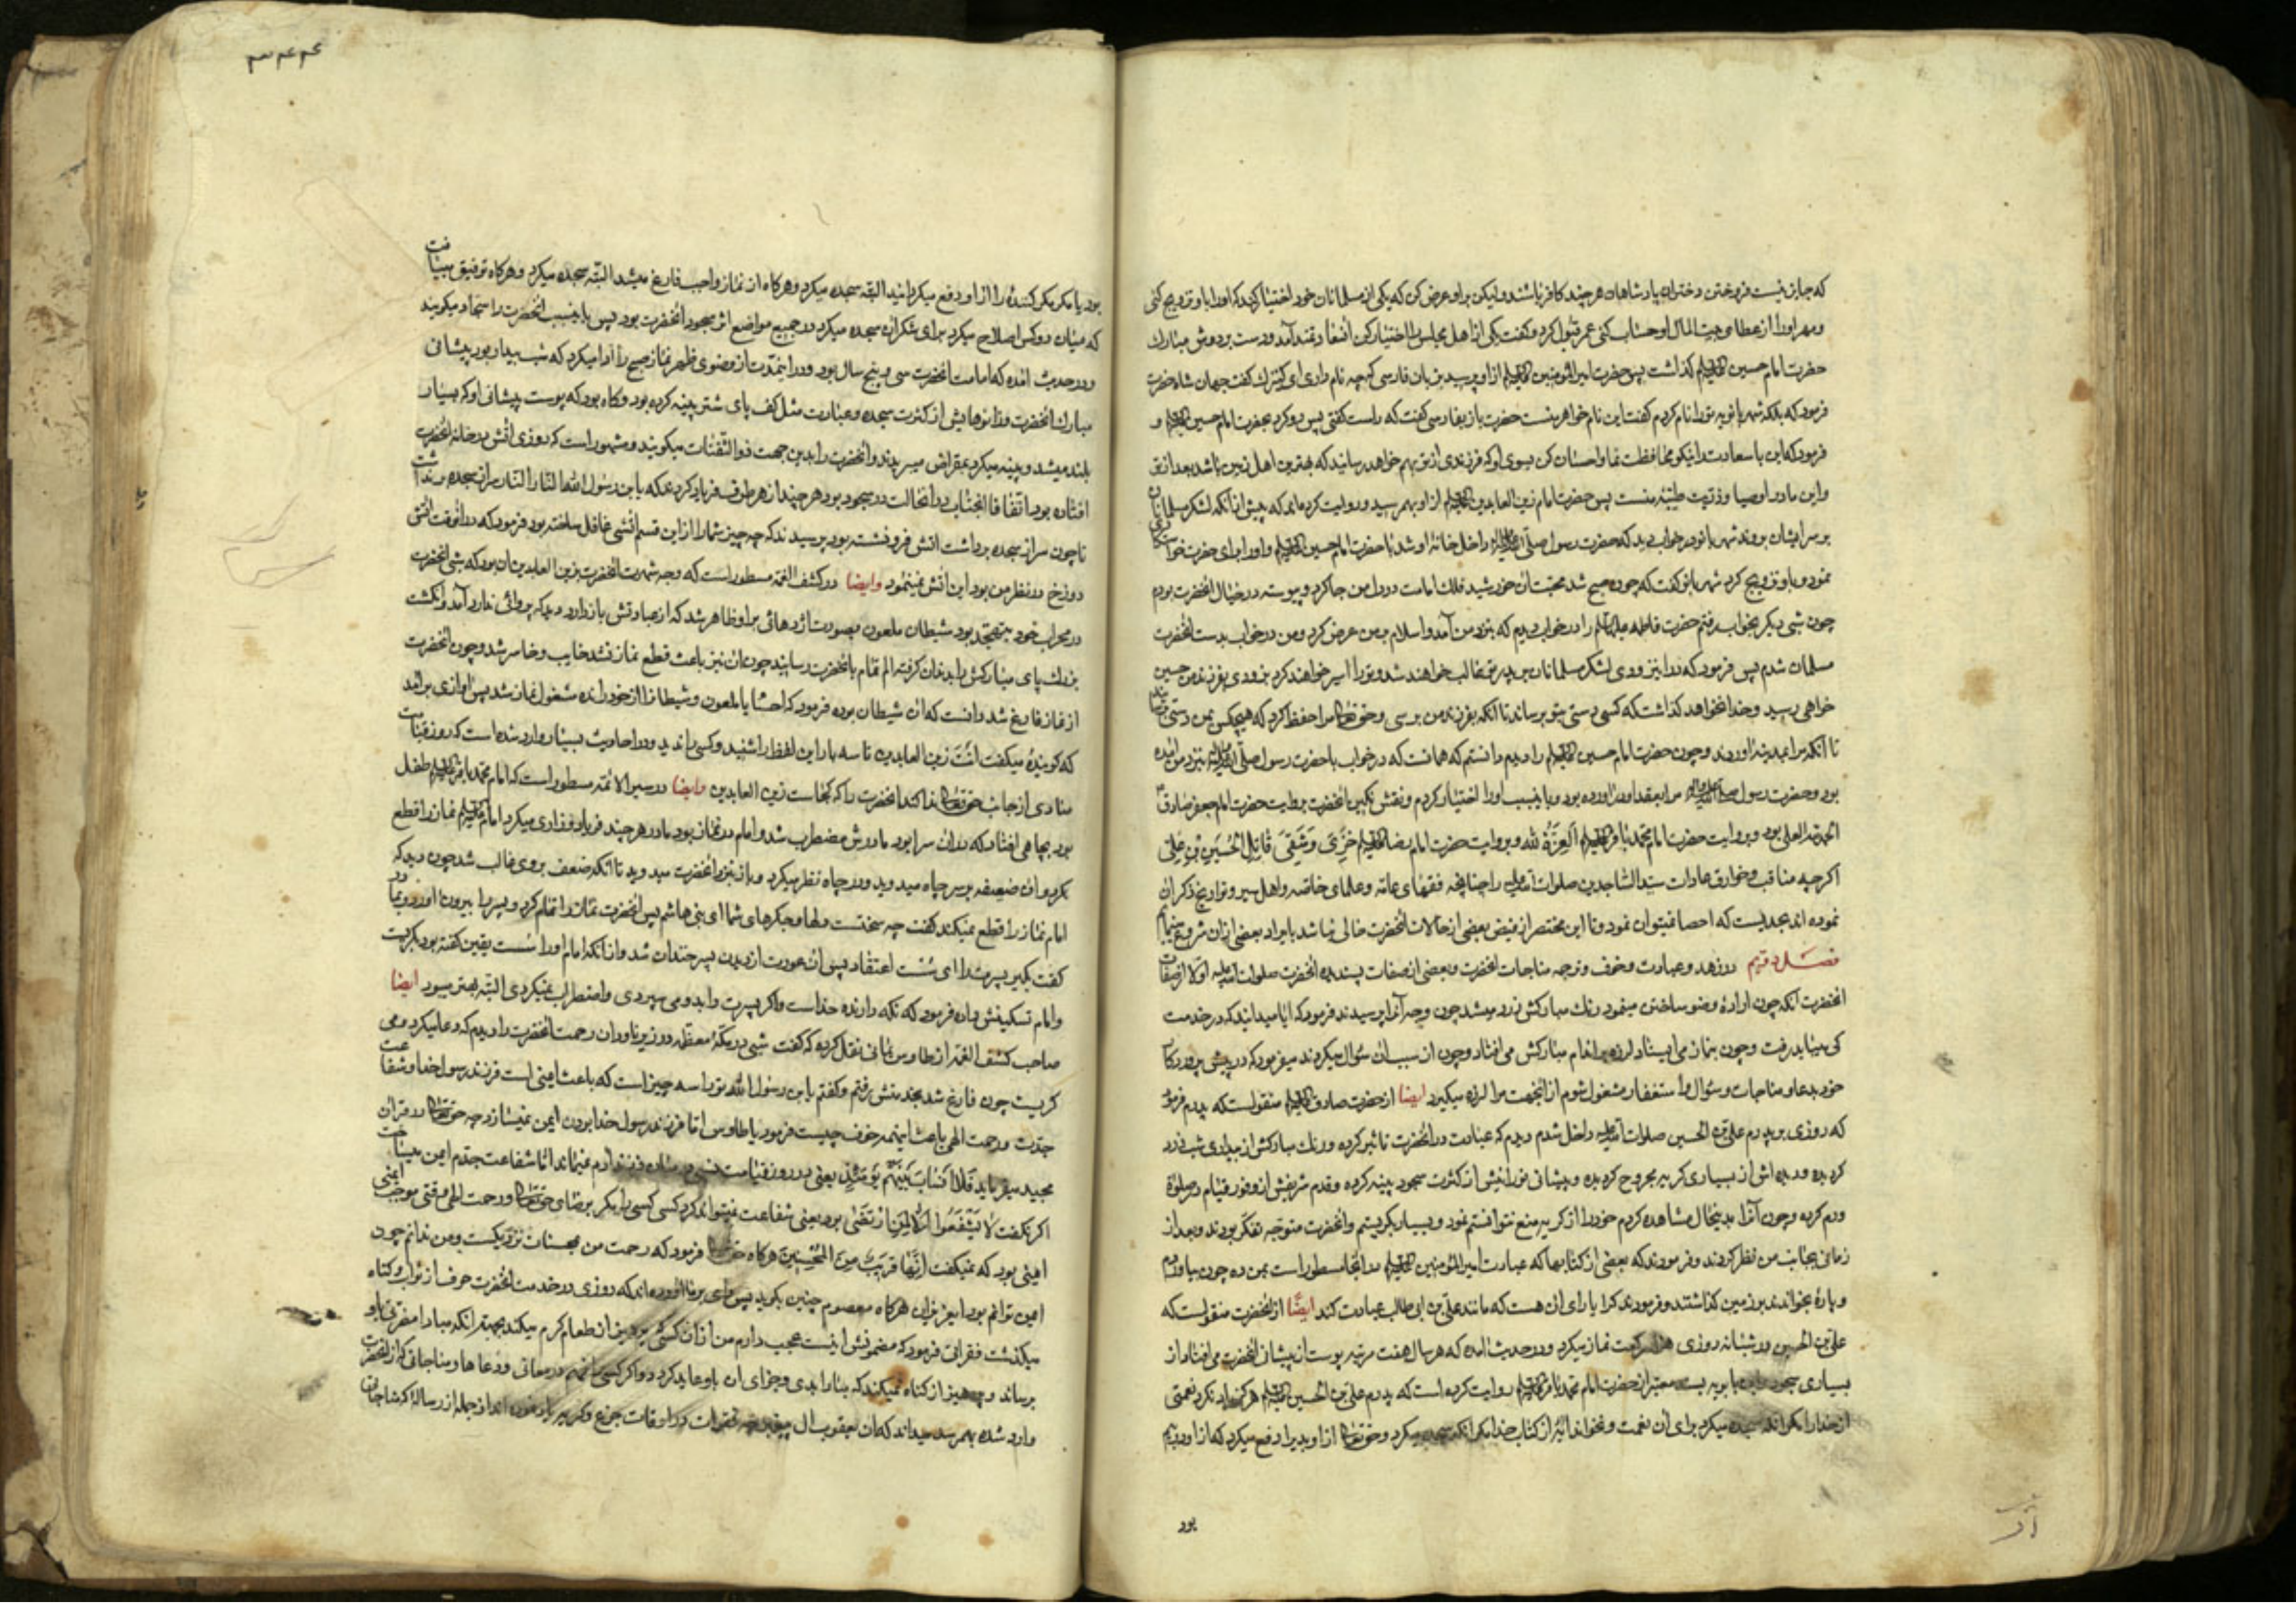 که جایز نیست فروختن دختران پادشاهان هر چند کافر باشند ولیکن براو عرض کن که یکی از مسلمانان خود اختیار کند که اورا باو تزویج کنی
ومهر اورا از عطای بیت المال او حساب کنی عمر قبول کرد وگفت یکی از اهل مجلس را اختیار کن انسعادتمند آمد ودست بردوش مبارک
حضرت امام حسین علیه السلم گذاشت پس حضرت امیر المؤمنین علیه السلم از او پرسید بزبان فارسی که چه نام داری ای کنیزک گفت جهان شاه حضرت
فرمود که بلکه شهربانویه تورا نام کردم گفت این نام خواهر منست حضرت باز بفارسی گفت که راست گفتی پس رو کرد بحضرت امام حسین علیه السلم و
فرمود که این با سعادت را نیکو محافظت نما واحسان کن بسوی او که فرزندی از تو بهم خواهد رسانید که بهترین اهل زمین باشد بعد از تو
واین مادر اوصیا وذریت طیبهٔ منست پس حضرت امام زین العابدین علیه السلم از او بهم رسید وروایت کرده‌اند که پیش از آنکه لشکر مسلمانان
بر سر ایشان بروند شهربانو در خواب دید که حضرت رسول صلی الله علیه واله داخل خانهٔ او شد با حضرت امام حسین علیه السلم واورا برای حضرت خواستگاری
نمود وباو تزویج کرد شهربانو گفت که چون صبح شد محبت ان خورشید فلک امامت در دل من جا کرد وپیوسته در خیال انحضرت بودم
چون شبی دیگر بخواب رفتم حضرت فاطمه علیها السلم را در خواب دیدم که بنزد من آمد واسلام بر من عرض کرد ومن در خواب بدست انحضرت
مسلمان شدم پس فرمود که در این زودی لشکر مسلمانان بر پدر تو غالب خواهند شد وتورا اسیر خواهند کرد بزودی بفرزند من حسین
خواهی رسید وخدا نخواهد گذاشت که کسی دستی بتو برساند تا آنکه بفرزند من برسی وحق تعالی مرا حفظ کرد که هیچکس بمن دستی نرسانید
تا آنکه مرا بمدینه اوردند وچون حضرت امام حسین علیه السلم را دیدم دانستم که همانست که در خواب با حضرت رسول صلی الله علیه واله بنزد من امده
بود وحضرت رسول صلی الله علیه واله مرا بعقد او در اورده بود وباینسبب اورا اختیار کردم ونقش نگین انحضرت بروایت حضرت امام جعفر صادق
الحمد لله العلی بود وبروایت حضرت امام محمد باقر علیه السلم العزة لله وبروایت حضرت امام رضا علیه السلم خزی وشقی قاتل الحسین بن علی
اگرچه مناقب وخوارق عادات سید الساجدین صلوات الله علیه را چنانچه فقهای عامه وعلمای خاصه واهل سیر وتواریخ ذکر ان
نموده اند بحدیست که احصا نمیتوان نمود وتا این مختصر از فیض بعضی از حالات انحضرت خالی نباشد بایراد بعضی از ان شروع مینمایم
فصل دویم در زهد وعبادت وخوف وترجمه مناجات انحضرت وبعضی از صفات پسندیده انحضرت صلوات الله علیه اولا از صفات
انحضرت انکه چون ارادهٔ وضو ساختن مینمود رنک مبارکش زرد میشد چون وجه آنرا پرسیدند فرمود که ایا میدانید که در خدمت
کی میباید رفت وچون بنماز می ایستاد لرزه بر اندام مبارکش می افتاد وچون از سبب ان سؤال میکردند میفرمود که در پیش پروردکار
خود بدعا ومناجات وسؤال واستغفار مشغول شوم از انجهت مرا لرزه میگیرد ایضا از حضرت صادق علیه السلم منقولست که پدرم فرمود
که روزی بر پدرم علی بن الحسین صلوات الله علیه داخل شدم دیدم که عبادت در انحضرت تاثیر کرده ورنک مبارکش از بیداری شب زرد
گردیده ودیده اش از بسیاری گریه مجروح گردیده وپیشانی نورانیش از کثرت سجود پینه کرده وقدم شریفش از وفور قیام در صلوة
ورم کرده وچون آنرا بدینحال مشاهده کردم خودرا از گریه منع نتوانستم نمود وبسیار بگریستم وانحضرت متوجه تفکر بودند وبعد از
زمانی بجانب من نظر کردند وفرمودند که بعضی از کتابها که عبادت امیر المؤمنین علیه السلم در انجا مسطور است بمن ده چون بیاوردم
وپارهٔ بخواندند بر زمین گذاشتند وفرمودند کرا یارای ان هست که مانند علی بن ابی طالب عبادت کند ایضًا از انحضرت منقولست که
علی بن الحسین در شبانه روزی هزار رکعت نماز میکرد ودر حدیث امده که هر سال هفت مرتبه پوست از پیشانی انحضرت می افتاد از
بسیاری سجود وابن بابویه بسند معتبر از حضرت امام محمد باقر علیه السلم روایت کرده است که پدرم علی بن الحسین علیه السلم هرگز یاد نکرد نعمتی
از خدا را مگر انکه سجده میکرد برای ان نعمت ونخواند ایهٔ از کتاب خدا مگر انکه سجده میکرد وحق تعالی از او بدیرا دفع میکرد که از او در بیم
بود
۳۴۴
بود یا مکر مکر کنندهٔ را از او دفع میکردانید البته سجده میکرد وهرکاه از نماز واجب فارغ میشد البته سجده میکرد وهرکاه توفیق مییافت
که میان دو کس اصلاح میکرد برای شکرانه سجده میکرد ودر جمیع مواضع اثر سجود انحضرت بود پس باینسبب انحضرت را سجاد میگویند
ودر حدیث امده که امامت انحضرت سی وپنج سال بود ودر اینمدت از وضوی ظهر نماز صبح را ادا میکرد که شب بیدار بود پیشانی
مبارک انحضرت وزانوهایش از کثرت سجده وعبادت مثل کف پای شتر پینه کرده بود وکاه بود که پوست پیشانی او که بسیار
بلند میشد وپینه میکرد بمقراض میبریدند وانحضرت را بدین جهت ذو الثفنات میگویند ومشهور است که روزی اتش در خانهٔ انحضرت
افتاده بود اتفاقا انجناب در انحالت در سجود بود هر چند از هر طرف فریاد کردند که یا بن رسول الله النار النار سر از سجده برنداشت
تا چون سر از سجده برداشت اتش فرو نشسته بود پرسیدند که چه چیز شمارا از این قسم اتشی غافل ساخته بود فرمود که در انوقت اتش
دوزخ در نظر من بود این اتش نمینمود وایضا در کشف الغمه مسطور است که وجه شهرت انحضرت بزین العابدین ان بود که شبی انحضرت
در محراب خود بتهجد بود شیطان ملعون بصورت اژدهائی براو ظاهر شد که از عبادتش باز دارد دید که پروائی ندارد آمد وانکشت
بزرک پای مبارکش را بدندان کرفته الم تمام بانحضرت رسانید چون ان نیز باعث قطع نماز نشد خایب وخاسر شد وچون انحضرت
از نماز فارغ شد دانست که ان شیطان بوده فرمود که اخسأ یا ملعون وشیطانرا از خود رانده مشغول نماز شد پس اوازی برامد
که گویندهٔ میگفت انت زین العابدین تا سه بار این لفظ را شنید وکسی را ندید ودر احادیث بسیار وارد شده است که روز قیامت
منادی از جانب حق تعالی ندا کند انحضرت را که کجاست زین العابدین وایضا در سیر الائمه مسطور است که امام محمد باقر علیه السلم طفل
بود بچاهی افتاد که در ان سرا بود مادرش مضطرب شد وامام در نماز بود مادر هر چند فریاد وزاری میکرد امام علیه السلم نماز را قطع
نکرد وان ضعیفه بر سر چاه میدوید ودر چاه نظر میکرد وباز بنزد انحضرت میدوید تا انکه ضعف بر وی غالب شد چون دید که
امام نماز را قطع نمیکند گفت چه سختست دلها وجگرهای شما ای بنی هاشم پس انحضرت نماز را تمام کرد وپسر را بیرون اورد وبمادر
گفت بگیر پسرت را ای سست اعتقاد پس ان عورت از دیدن پسر خندان شد واز انکه امام اورا سست یقین گفته بود بگریست
وامام تسکینش داده فرمود که نکه دارنده خداست واگر پسرت را بدو می سپردی واضطراب نمیکردی البته بهتر میبود ایضا
صاحب کشف الغمه از طاوس یمانی نقل کرده که گفت شبی در مکهٔ معظمه در زیر ناودان رحمت انحضرت را دیدم که دعا میکرد ومی
گریست چون فارغ شد بخدمتش رفتم وگفتم یا بن رسول الله تورا سه چیز است که باعث ایمنی است فرزند رسول خدا وشفاعت
جدت ورحمت الهی باعث اینهمه خوف چیست فرمود یا طاوس اما فرزند رسول خدا بودن ایمن نمیسازد چه حق تعالی در قران
مجید میفرماید فلا انساب بینهم یومئذ یعنی در روز قیامت اما شفاعت جدم ایمن میساخت
اگر نگفت لا یشفعون الا لمن ارتضی بود یعنی شفاعت نمیتواند کرد کسی کسی را مگر برضای حق تعالی ورحمت الهی وقتی موجب ایمنی
ایمنی بود که نمیگفت انها قریب من المحسنین هرکاه حق تعالی فرمود که رحمت من بمحسنان نزدیکست ومن ندانم چون
ایمن توانم بود ایعزیزان هرکاه معصوم چنین بگوید پس وای بر ما اورده اند که روزی در خدمت انحضرت حرف از ثواب وگناه
میگذشت فقراتی فرمود که مضمونش اینست عجب دارم من از ان کسی که پرهیز از طعام کرم میکند بجهت انکه مبادا مضرتی باو
برساند وپرهیز از گناه نمیکند که بنار ابدی وجزای ان باو عاید گردد واگر کسی در معانی ودعاها ومناجاتی که از انحضرت
وارد شده بهم رسد میداند که ان یعقوب ال پیغمبر چه فقرات در اوقات جزع وگریه یاد نموده اند از جمله از رساله که